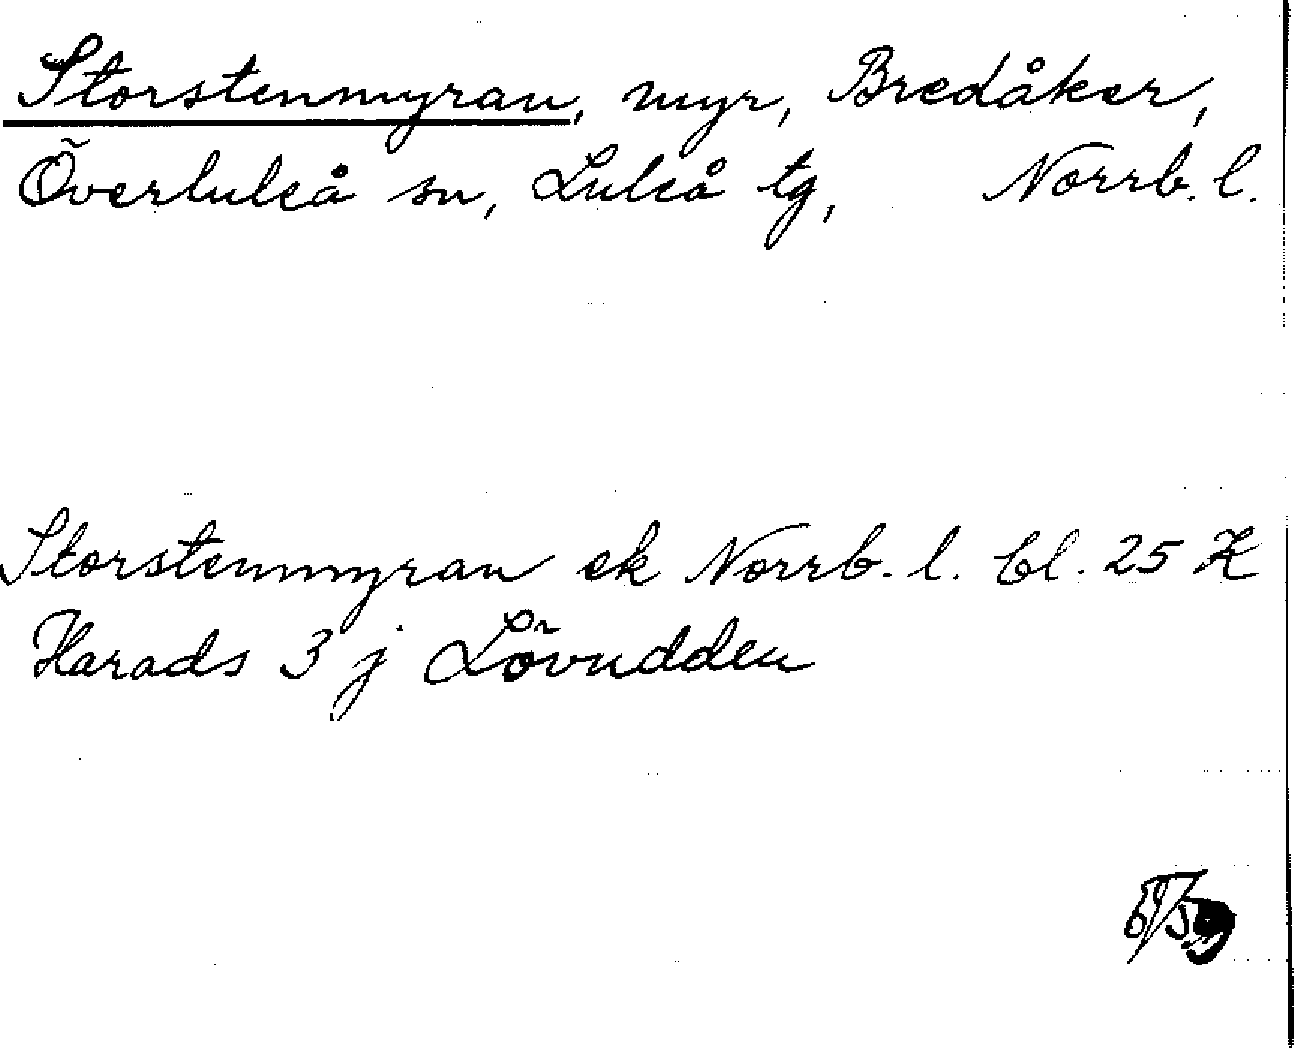 Storstenmyran, myr, Bredåker,
Överluleå sn, Luleå tg, Norrb. l.
Storstenmyran ek Norrb. l. bl. 25 H
Harads 3 j Lövudden